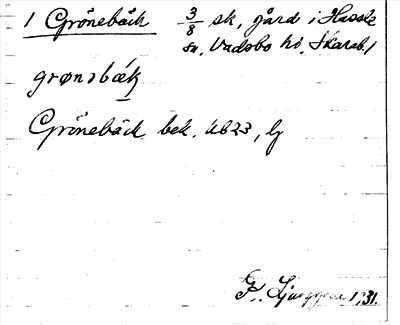 1 Grönebäck 3/8 sk, gård i Hassle
sn, Vadsbo hd, Skarab. l
grønəbæk
Grönebäck bek. ub 23, lj
K. Ljunggren 1931.